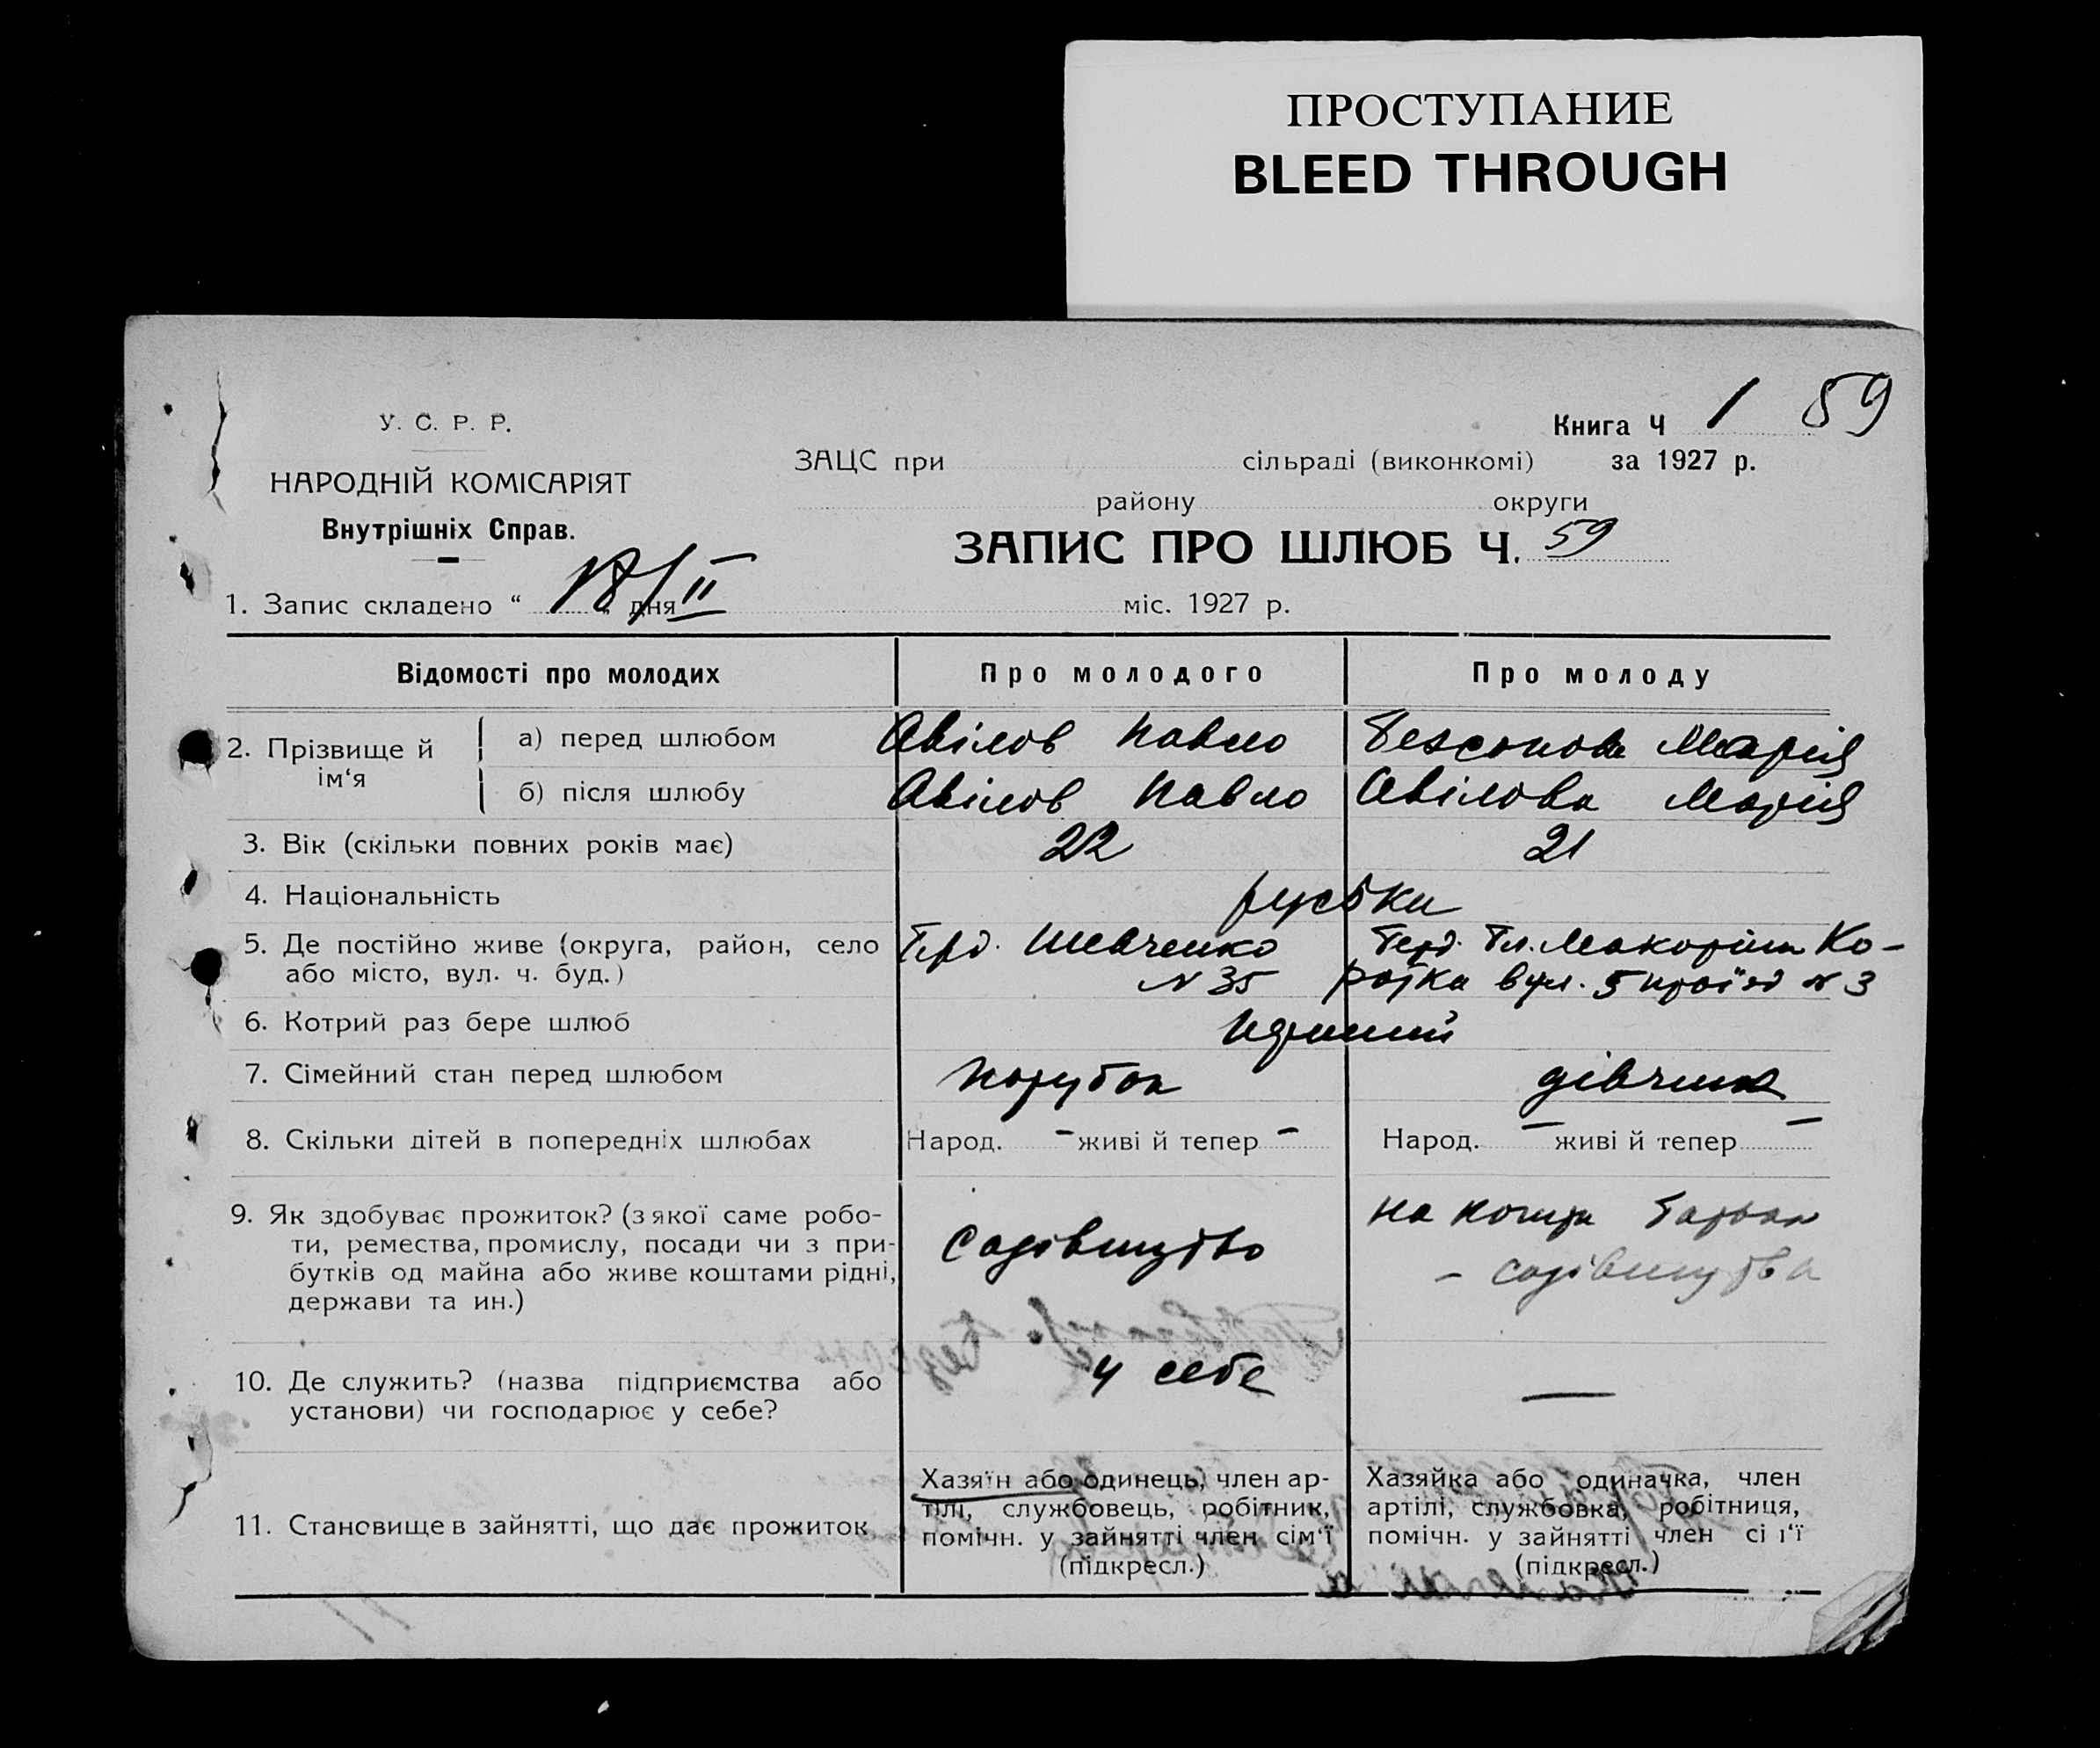 ПРОСТУПАНИЕ
BLEED THROUGH
У. С. Р. Р.
НАРОДНІЙ КОМІСАРІЯТ
Внутрішніх Справ.
Книга Ч 1 59
ЗАЦС при сільраді (виконкомі) за 1927 р.
району округи
ЗАПИС ПРО ШЛЮБ Ч. 59
1. Запис складено “ 18/II „ дня міс. 1927 р.
Відомості про молодих Про молодого Про молоду
2. Прізвище й ім‘я
а) перед шлюбом Авілов Павло Марія
б) після шлюбу Авілов Павло Авілова Марія
3. Вік (скільки повних років має) 22 21
4. Національність руські
5. Де постійно живе (округа, район, село Шевченко Ко-
або місто, вул. ч. буд.) № 35 ротка вул. 5 проїзд № 3
6. Котрий раз бере шлюб
7. Сімейний стан перед шлюбом парубок дівчина
8. Скільки дітей в попередніх шлюбах Народ. – живі й тепер – Народ. – живі й тепер –
9. Як здобуває прожиток? (з якої саме робо-
ти, ремества, промислу, посади чи з при-
бутків од майна або живе коштами рідні,
держави та ин.)
садівництво
на кошти батька
– садівництва
10. Де служить? (назва підприємства або
установи) чи господарює у себе?
у себе —
11. Становище в зайнятті, що дає прожиток
Хазяїн або одинець, член ар-
тілі, службовець, робітник,
помічн. у зайнятті член сім‘ї
(підкресл.)
Хазяйка або одиначка, член
артілі, службовка, робітниця,
помічн. у зайнятті член сі ı‘ї
(підкресл.)